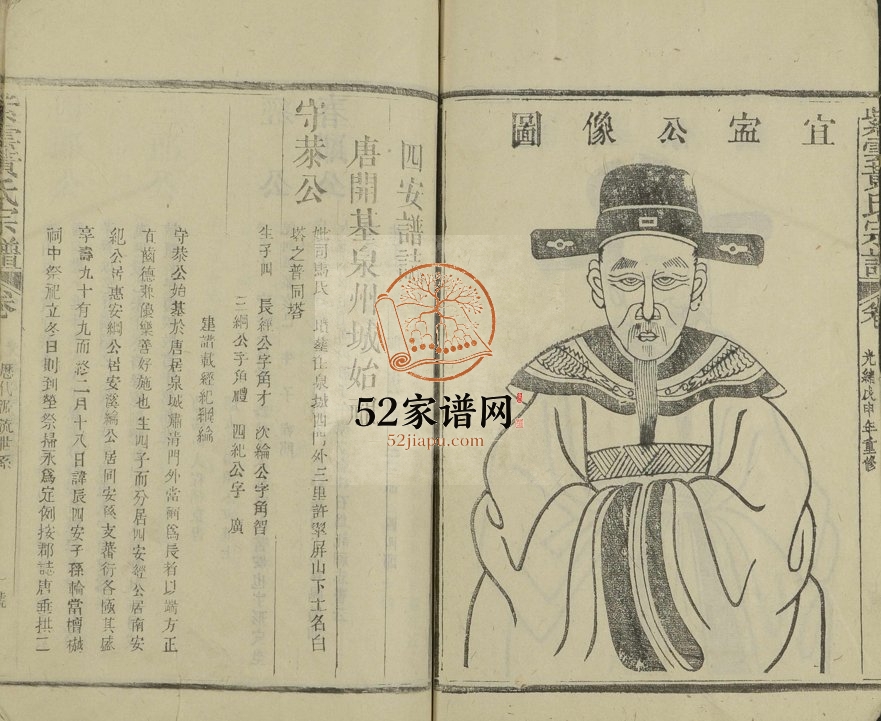 宜盁公像圖
紫雲黃氏宗譜
卷
光緒戊申年重修
四安譜誌
唐開基泉州城始
守恭公
妣司馬氏
泉城西門外三里許翠屏山下土名白
塔之普同塔
生子四 長經公字角才 次綸公字角智
三綱公字角禮 四紀公字 廣
建譜載經紀綱綸
守恭公始基於唐居泉城肅清門外當爲長者以端方正
有齒德兼優樂善好施也生四子而分居四安經公居南安
紀公居惠安綱公居安溪綸公居同安孫支蕃衍各極其盛
享壽九十有九而終二月十八日諱辰四安子孫輪當檀樾
祠中祭祀立冬日則到塋祭掃永爲定例按郡誌唐垂拱二
紫雲黃氏宗譜
卷
歷代源流世系
52家谱网
52jiapu.com